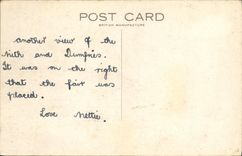 POST CARD
BRITISH MANUFACTURE
another view of the
Nith and Dumfries.
It was on the right
that the fair was
placed.
Love Nettie.